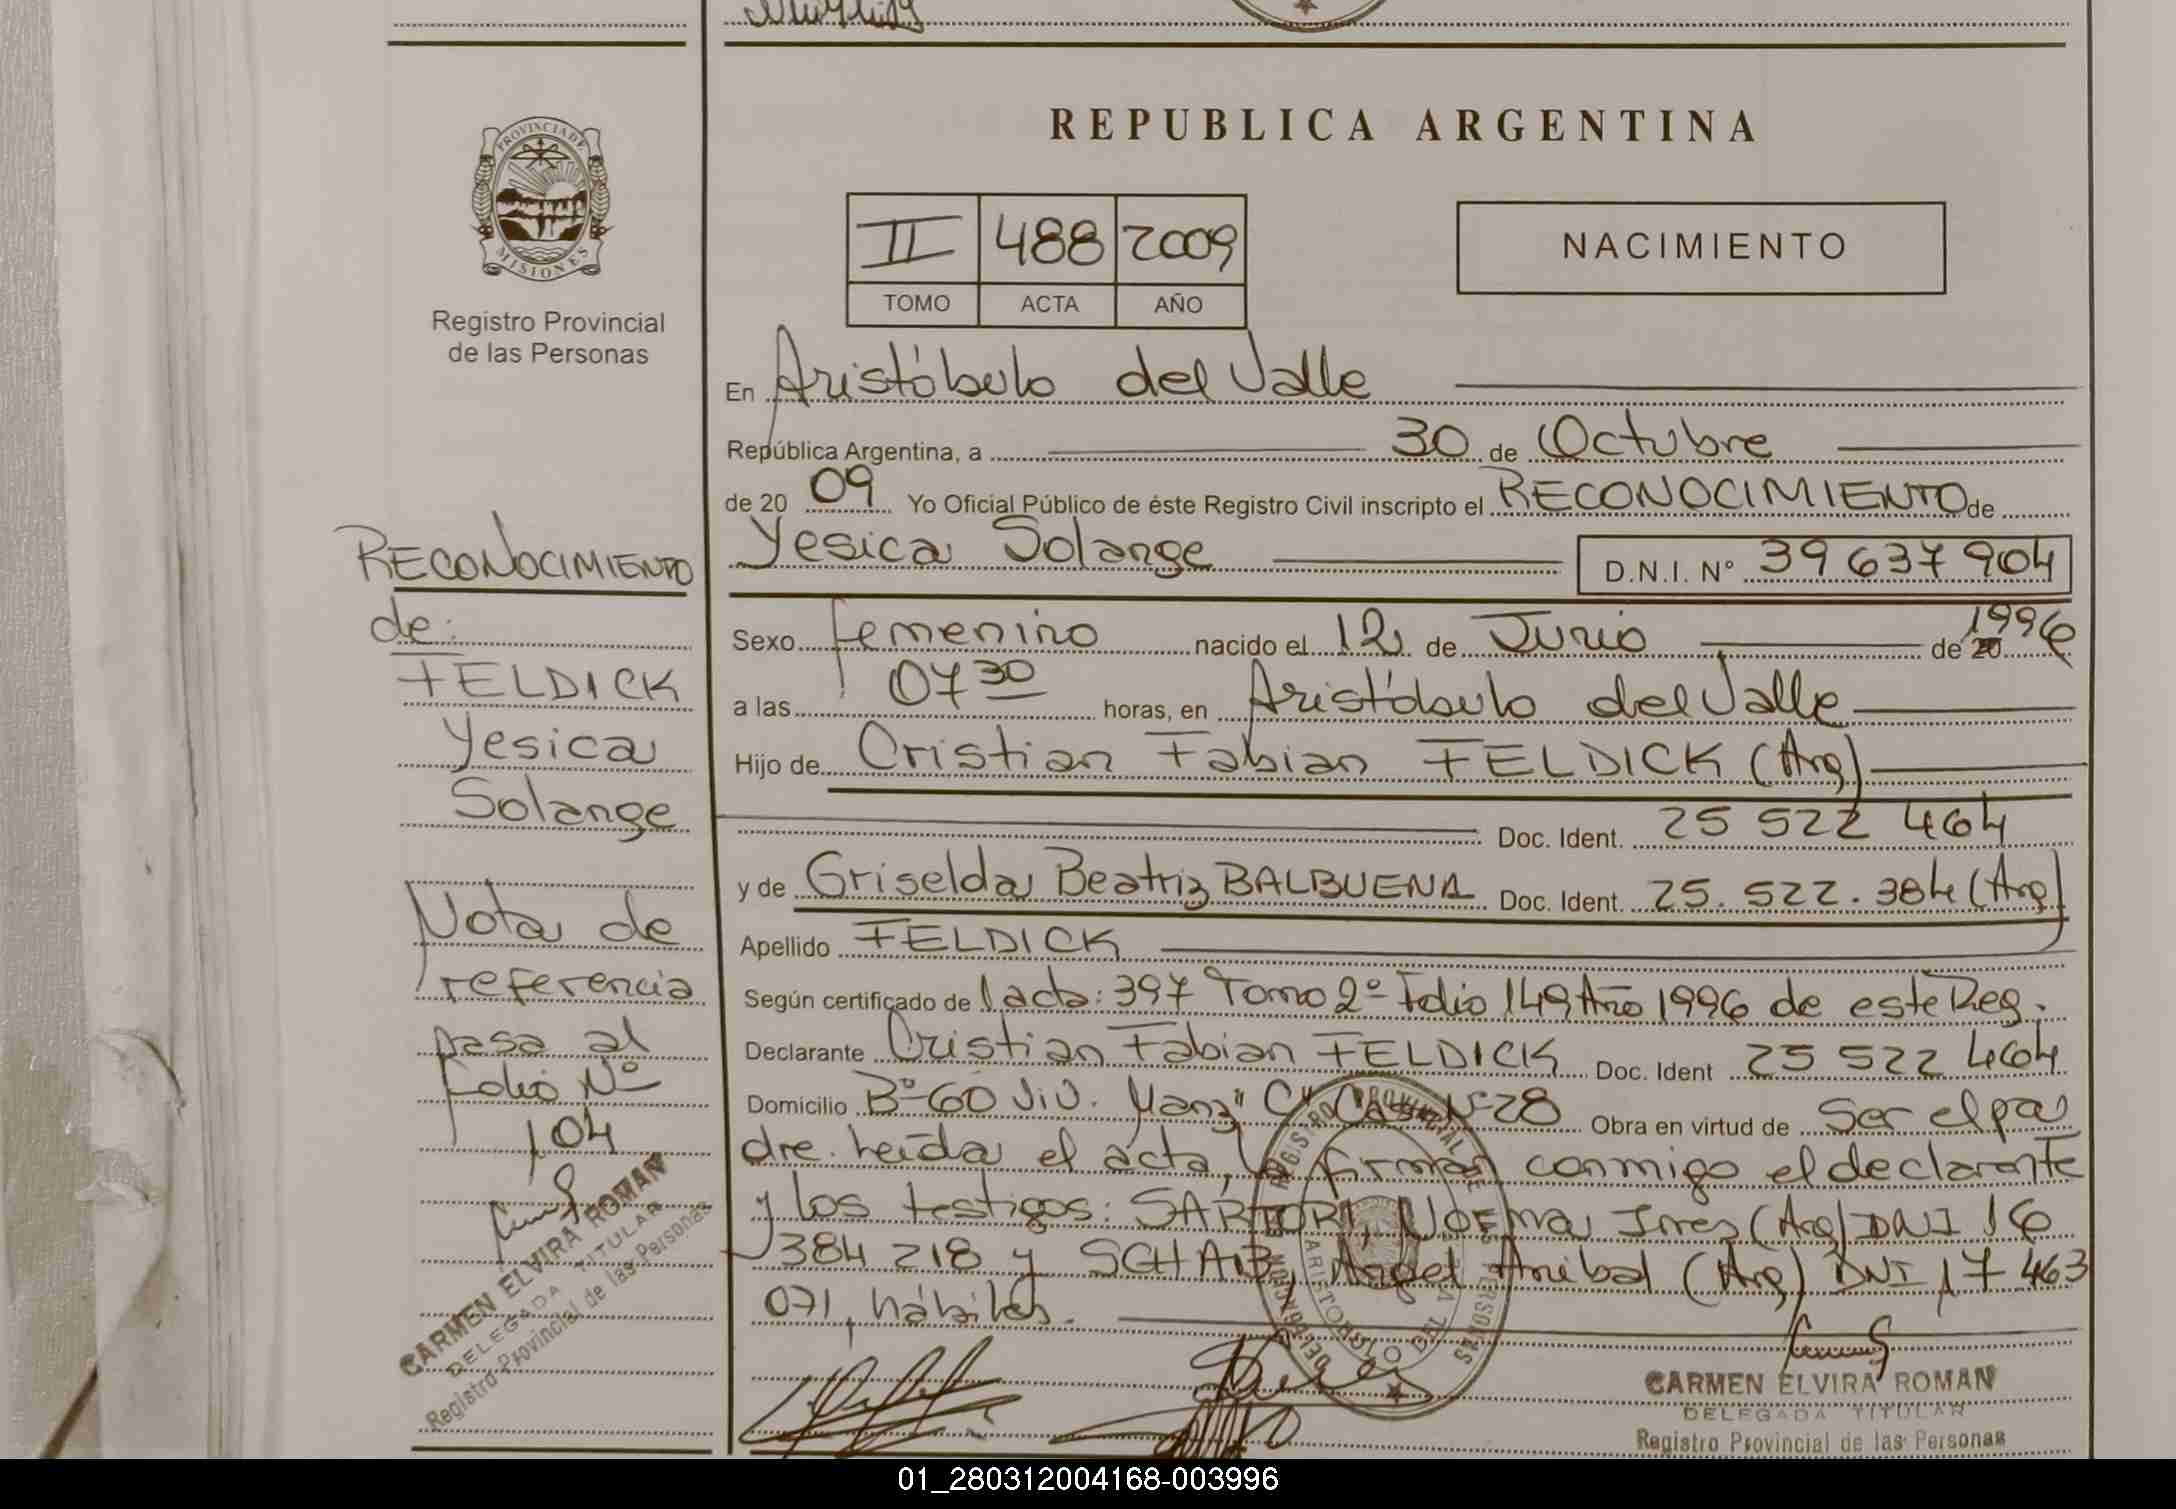 REPUBLICA ARGENTINA
PROVINCIA DE
MISIONES
Registro Provincial
de las Personas
II 488 2009
TOMO ACTA AÑO
NACIMIENTO
En Aristóbulo del Valle
República Argentina, a 30 de Octubre
de 20 09 Yo Oficial Público de éste Registro Civil inscripto el RECONOCIMIENTO de
Yesica Solange D.N.I. N° 39 637 904
Sexo femenino nacido el 12 de Junio de 20 1996
a las 07 30 horas, en Aristóbulo del Valle
Hijo de Cristian Fabian FELDICK (Arg)
Doc. Ident. 25 522 464
y de Griselda Beatriz BALBUENA Doc. Ident. 25.522.384 (Arg)
Apellido FELDICK
Según certificado de 1 acta: 397 Tomo 2º Folio 149 Año 1996 de este Reg.
Declarante Cristian Fabian FELDICK Doc. Ident 25 522 464
Domicilio Bº 60 Viv. Manz "C" Casa Nº 28 Obra en virtud de Ser el pa
dre. Leída el acta, la firman conmigo el declarante
y los testigos: SARTORI, Norma Ines (Arg) DNI 16
384 218 y SCHAIB, Angel Anibal (Arg) DNI 17 463
071, hábiles.
CARMEN ELVIRA ROMAN
DELEGADA TITULAR
Registro Provincial de las Personas
RECONOCIMIENTO
de:
FELDICK
Yesica
Solange
Nota de
referencia
pasa al
folio Nº
104
CARMEN ELVIRA ROMAN
DELEGADA TITULAR
Registro Provincial de las Personas
01_280312004168-003996